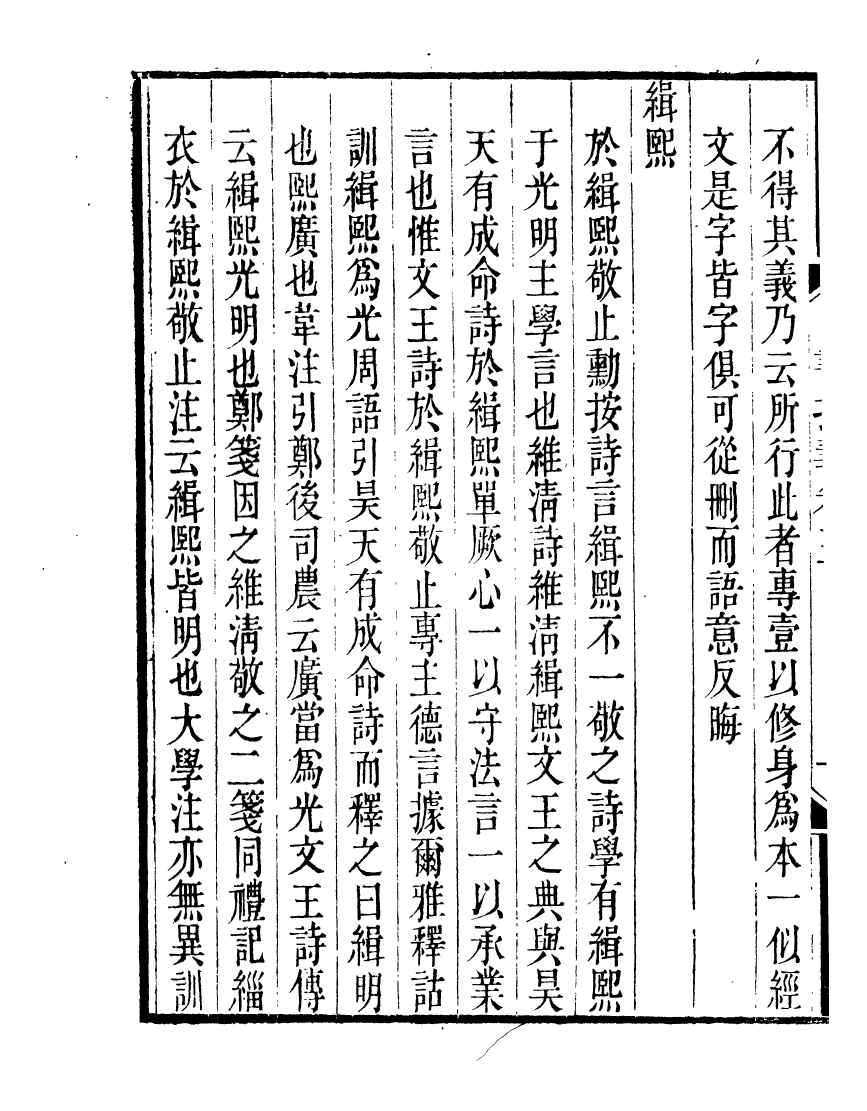 不得其義乃云所行此者專壹以修身爲本一似經
文是字皆字俱可從刪而語意反晦
緝熙
於緝熙敬止勳按詩言緝熙不一敬之詩學有緝熙
于光明主學言也維淸詩維淸緝熙文王之典與昊
天有成命詩於緝熙單厥心一以守法言一以承業
言也惟文王詩於緝熙敬止專主德言據爾雅釋詁
訓緝熙爲光周語引昊天有成命詩而釋之曰緝明
也熙廣也韋注引鄭後司農云廣當爲光文王詩傳
云緝熙光明也鄭箋因之維淸敬之二箋同禮記緇
衣於緝熙敬止注云緝熙皆明也大學注亦無異訓